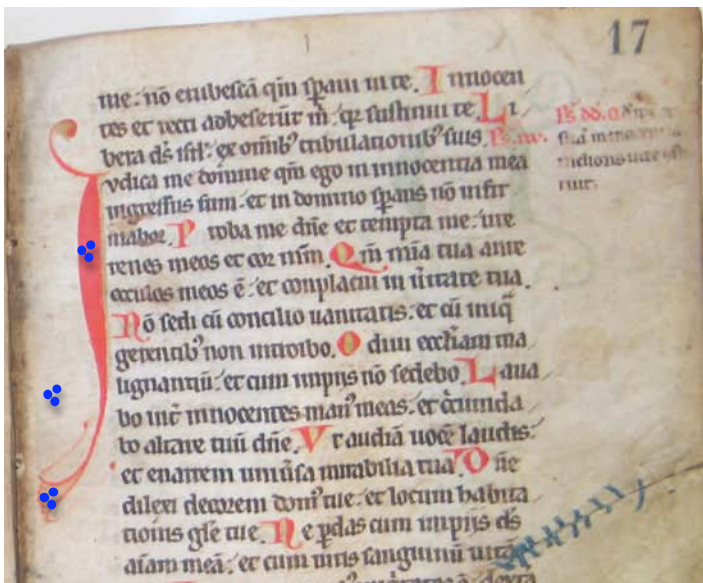 17
me: nō erubescā qm̄ sp̄aui in te. Innocen
tes et recti adheserūt m̄: qr sustinui te Li
bera ds̄ isrl̄: ex om̄ib⁹ tribulationib⁹ suis. Ps. xxv.
Iudica me domine qm̄ ego in innocentia mea
ingressus sum: et in domino sp̄ans nō infir
mabor. Proba me dn̄e et tempta me: ure
renes meos et cor mm̄. Qm̄ mīa tua ante
occulos meos ē: et conplacui in ūitate tua.
Nō sedi cū concilio uanitatis: et cū iniq̄
gerentib⁹ non introibo. Odiui eccl̄iam ma
lignantiū: et cum impijs nō sedebo. Laua
bo int̄ innocentes man⁹ meas: et c̄cumda
bo altare tuū dn̄e. Vt audiā uocē laudis:
et enarrem uniūsa mirabilia tua. Dn̄e
dilexi decorem dom⁹ tue: et locum habita
tionis gl̄e tue. Ne ꝑdas cum impijs ds̄
aīam meā: et cum uiris sanguinū uitā